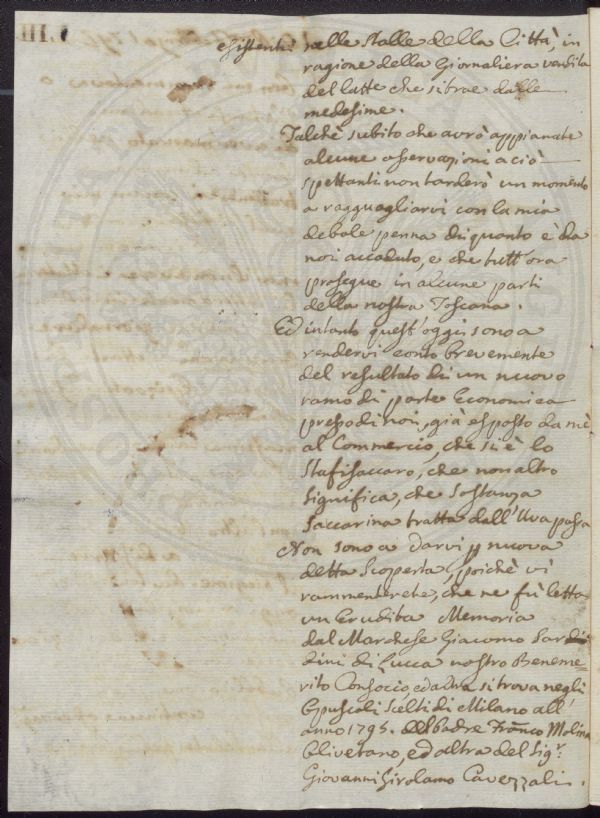 esistenti nelle Stalle della Città, in
ragione della Giornaliera vendita
del latte che si trae dalle
medesime.
Talchè subito che avrò appianate
alcune osservazioni a ciò
spettanti non tarderò un momento
a ragguagliarvi con la mia
debole penna di quanto è da
noi accaduto, e che tutt'ora
prosegue in alcune parti
della nostra Toscana.
Ed intanto quest'oggi sono a
rendervi conto brevemente
del resultato di un nuovo
ramo di parte Economica
presso di noi, già esposto da mè
al Commercio, che si è lo
Stafisaccaro, che non altro
significa, che Sostanza
Saccarina tratta dall'Uva passa
Non sono a darvi p nuova
detta Scoperta, poichè vi
rammenterete, che ne fù letta
un Erudita Memoria
dal Marchese Giacomo Sar
dini di Lucca nostro Beneme
rito Consocio, ed altra si trova negli
Opuscoli Scelti di Milano all'
anno 1795. del Padre Franco Molina
Olivetano, ed altra del Sigr.
Giovanni Girolamo Cavezzali.